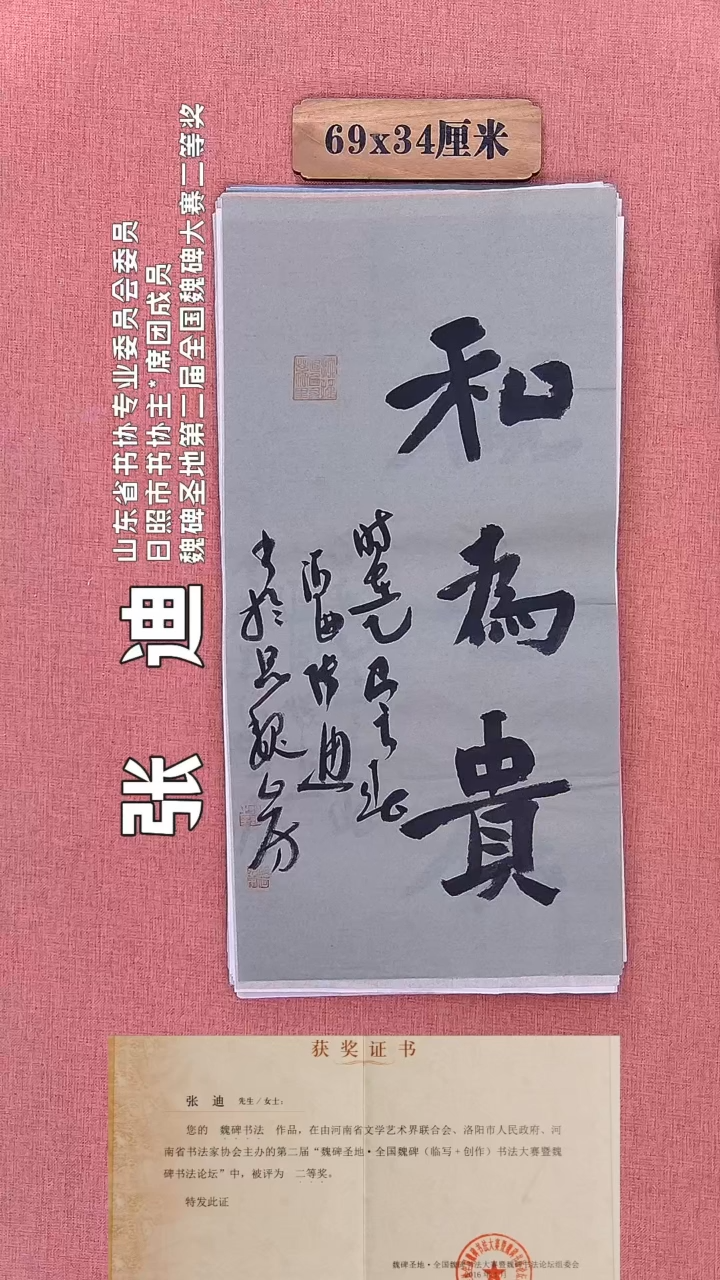 69x34厘米
山东省书协专业委员会委员
日照市书协主*席团成员
魏碑圣地第二届全国魏碑大赛二等奖
张 迪
和为貴
获奖证书
张 迪 先生/女士:
您的 魏碑书法 作品,在由河南省文学艺术界联合会、洛阳市人民政府、河
南省书法家协会主办的第二届“魏碑圣地·全国魏碑(临写+创作)书法大赛暨魏
碑书法论坛”中,被评为 二等奖。
特发此证
魏碑圣地·全国魏碑书法大赛暨魏碑书法论坛组委会